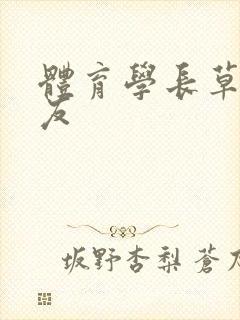 體育學長草
友
坂野杏梨蒼